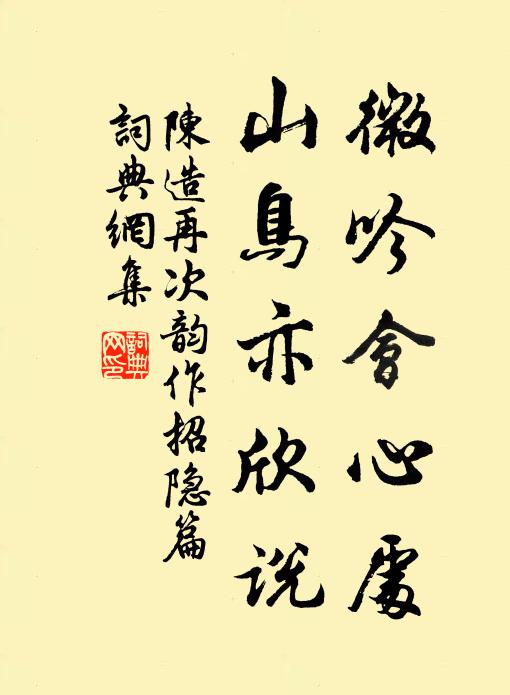 微吟會心處
山鳥亦欣説
陳造再次韵作招隐篇
詞典網集
詞典網印